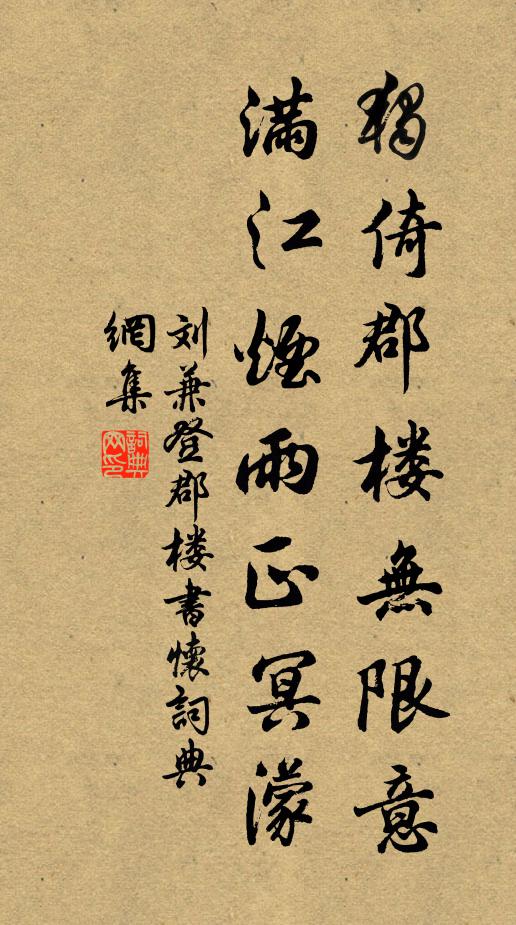 獨倚郡楼無限意
滿江煙雨正冥濛
刘兼登郡楼書懷詞典
網集
詞典網印